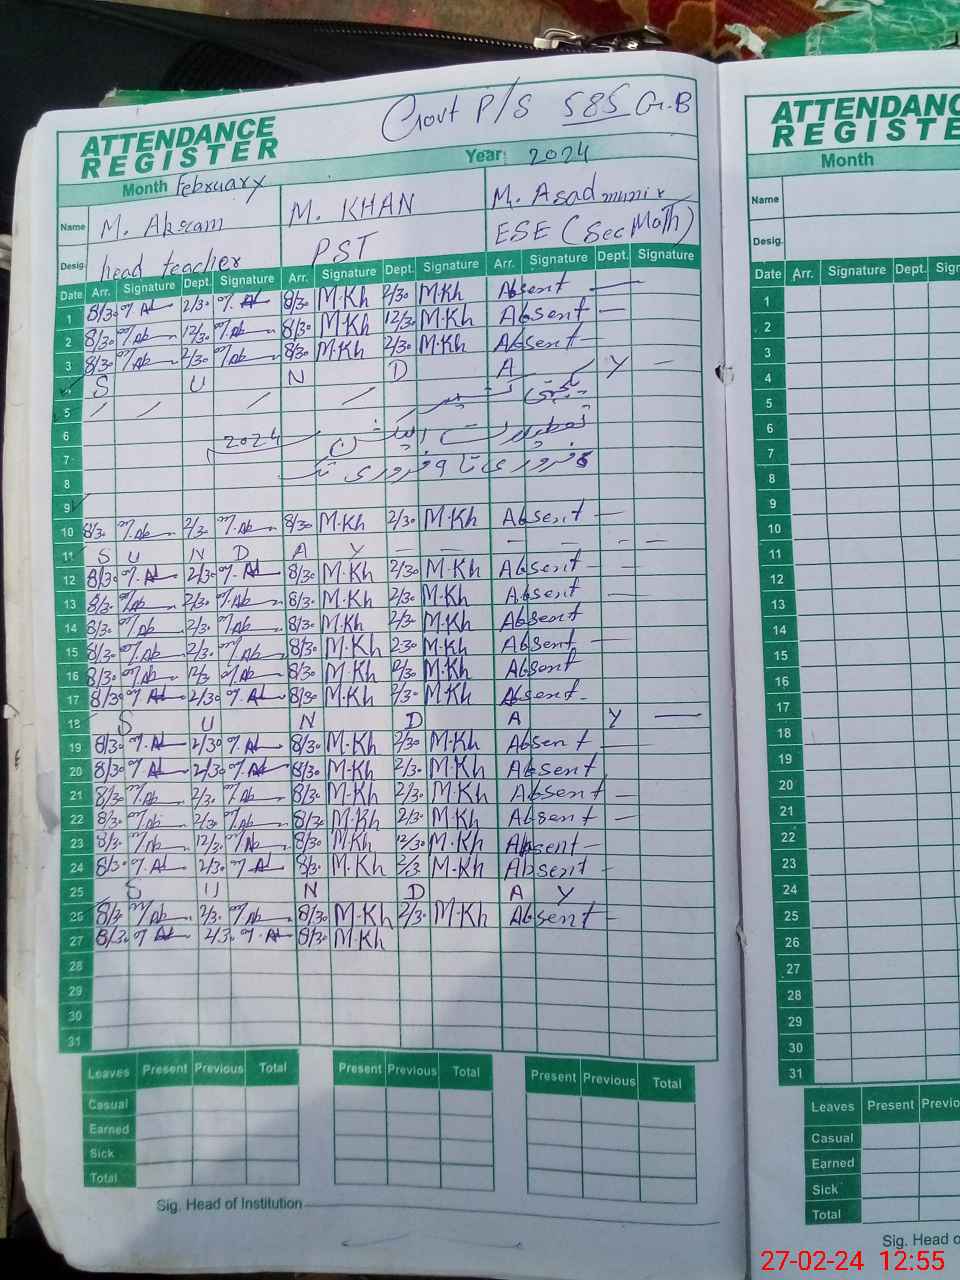 Govt P/S 585 G.B
ATTENDANCE REGISTER
Year: 2024
Month February
Name M. Akram M. KHAN M. Asad munir
Desig. head teacher PST ESE (Sec Math)
Date Arr. Signature Dept. Signature Arr. Signature Dept. Signature Arr. Signature Dept. Signature
1 8/30 2/30 8/30 M.Kh 2/30 M.Kh Absent
2 8/30 12/30 8/30 M.Kh 12/30 M.Kh Absent
3 8/30 2/30 8/30 M.Kh 2/30 M.Kh Absent
4 S U N D A Y
5
6 2024
7
8
9
10 8/30 2/30 8/30 M.Kh 2/30 M.Kh Absent
11 S U N D A Y
12 8/30 2/30 8/30 M.Kh 2/30 M.Kh Absent
13 8/30 2/30 8/30 M.Kh 2/30 M.Kh Absent
14 8/30 2/30 8/30 M.Kh 2/30 M.Kh Absent
15 8/30 2/30 8/30 M.Kh 230 M.Kh Absent
16 8/30 12/30 8/30 M.Kh 12/30 M.Kh Absent
17 8/30 2/30 8/30 M.Kh 2/30 M.Kh Absent
18 S U N D A Y
19 8/30 2/30 8/30 M.Kh 2/30 M.Kh Absent
20 8/30 2/30 8/30 M.Kh 2/30 M.Kh Absent
21 8/30 2/30 8/30 M.Kh 2/30 M.Kh Absent
22 8/30 2/30 8/30 M.Kh 2/30 M.Kh Absent
23 8/30 12/30 8/30 M.Kh 12/30 M.Kh Absent
24 8/30 2/30 8/30 M.Kh 2/3 M.Kh Absent
25 S U N D A Y
26 8/30 2/30 8/30 M.Kh 2/30 M.Kh Absent
27 8/30 2/30 8/30 M.Kh
28
29
30
31
Leaves Present Previous Total Present Previous Total Present Previous Total
Casual
Earned
Sick
Total
Sig. Head of Institution
ATTENDANC
REGISTE
Month
Name
Desig.
Date Arr. Signature Dept. Sign
1
2
3
4
5
6
7
8
9
10
11
12
13
14
15
16
17
18
19
20
21
22
23
24
25
26
27
28
29
30
31
Leaves Present Previo
Casual
Earned
Sick
Total
Sig. Head o
27-02-24 12:55